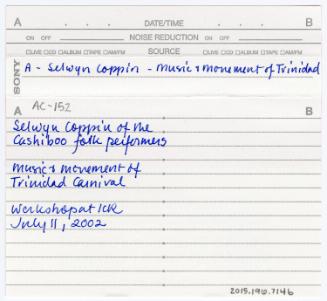 A DATE/TIME B
ON OFF NOISE REDUCTION ON OFF
□LIVE □CD □ALBUM □TAPE □AM/FM SOURCE □LIVE □CD □ALBUM □TAPE □AM/FM
SONY
A - Selwyn Coppin - Music & movement of Trinidad
AC-152
A B
Selwyn Coppin of the
Cashiboo folk performers
Music & movement of
Trinidad Carnival
Workshop at ICR
July 11, 2002
2015.196.7146